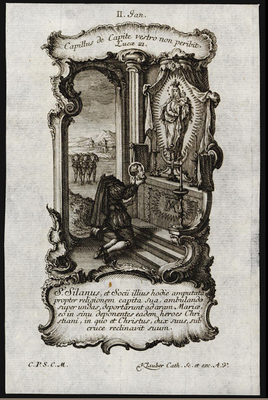 II. Jan.
Capillus de Capite vestro non peribit.
Lucæ 21.
S. Silanus, et Socii illius hodie amputata
propter religionem capita sua, ambulando
super undas, deportarunt ad aram Mariæ,
eo in sinu deponentes eadem heroes Chri-
stiani, in quo et Christus, dux suus, sub
cruce reclinavit suum.
C.P.S.C.M.
Klauber Cath. Sc. et exc. A.V.